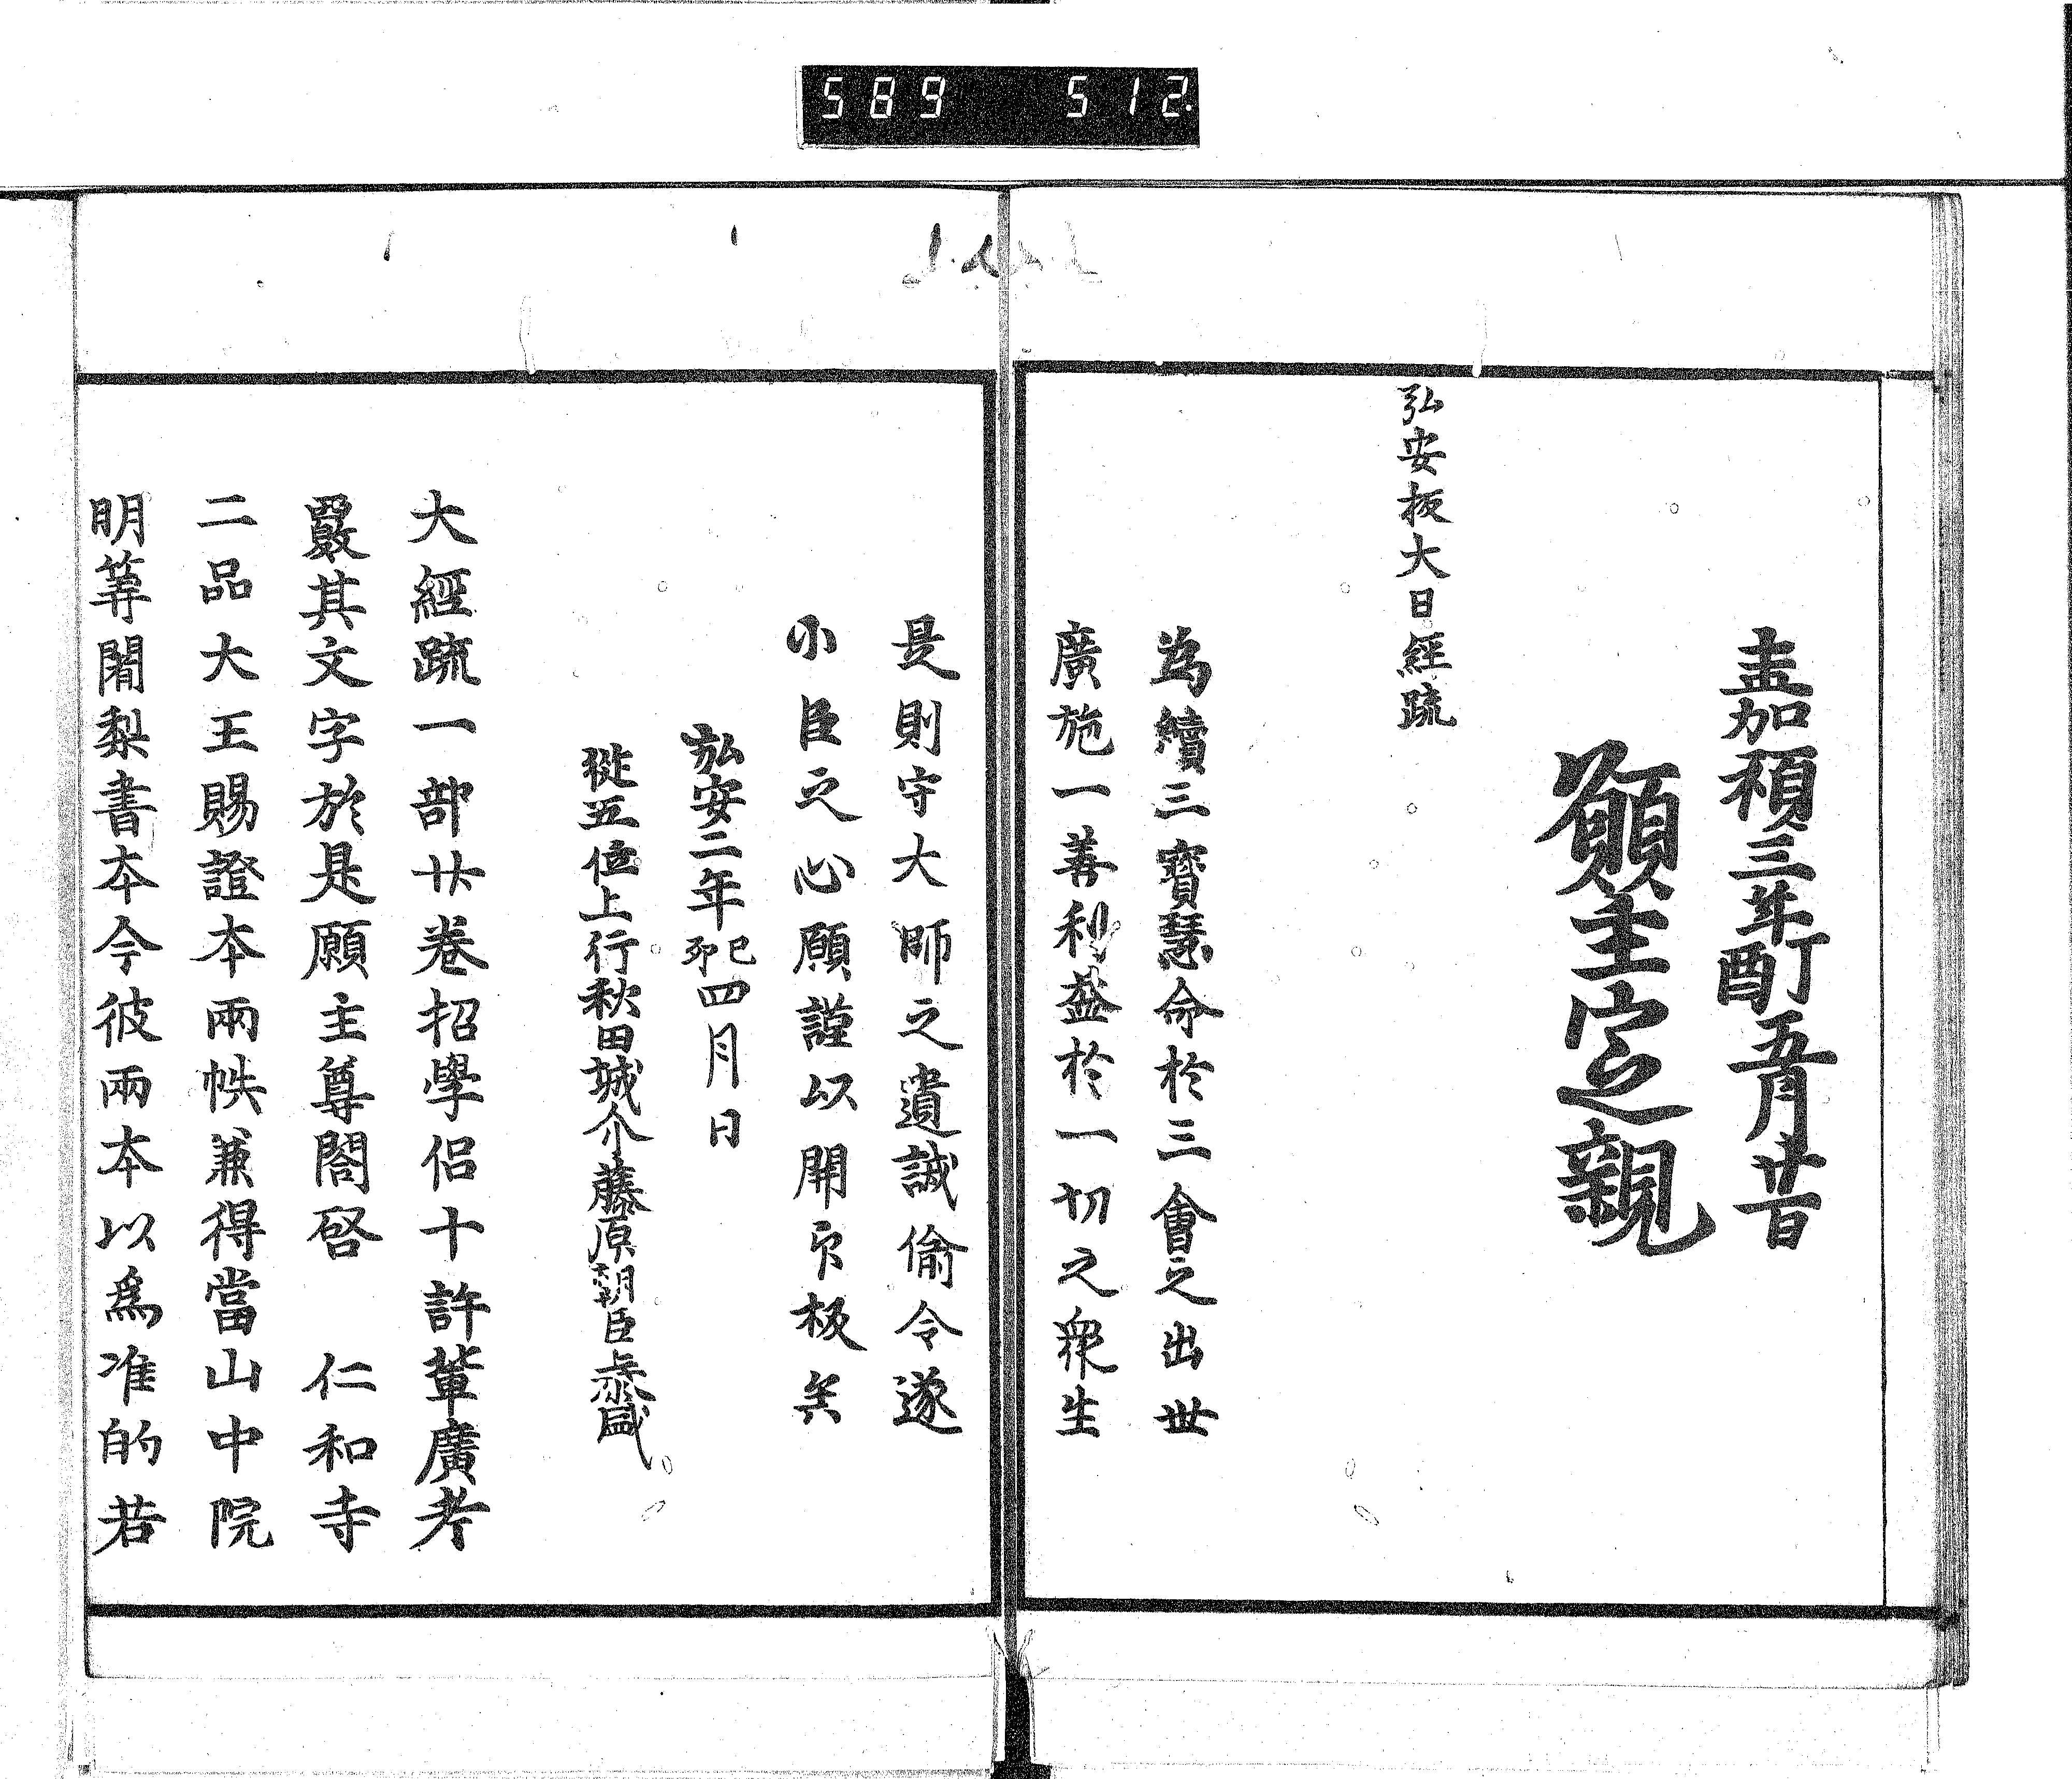 589 512
嘉禎三年丁酉五月廿一日
願主定親
弘安板大日經疏
為續三寶慧命於三會之出世
廣施一善利益於一切之衆生
是則守大師之遺誡偷令遂
小臣之心願謹以開印板矣
弘安二年己卯四月日
從五位上行秋田城介藤原朝臣泰盛
大經疏一部廿卷招學侶十許輩廣考
覈其文字於是願主尊閤啓 仁和寺
二品大王賜證本兩帙兼得當山中院
明等闍梨書本今彼兩本以爲准的若